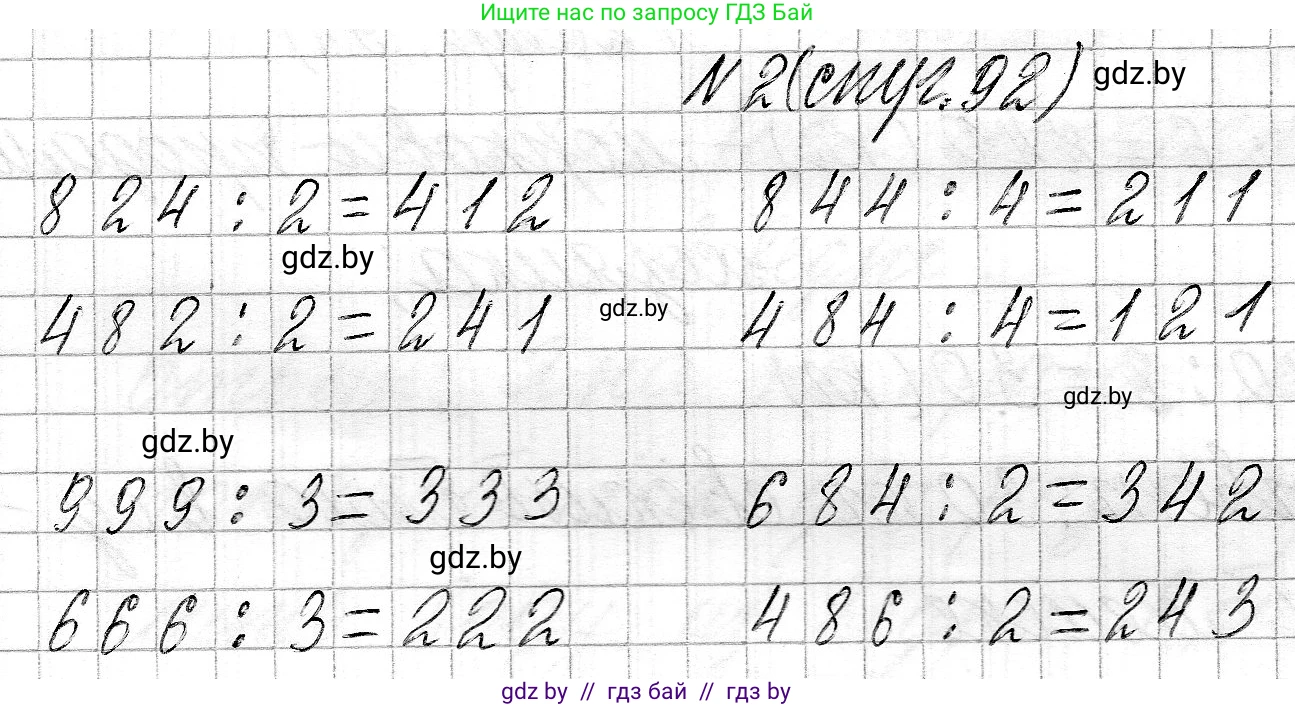 Ищите нас по запросу ГДЗ Бай
N 2 (скуг. 92) gdz.by
824 : 2 = 412 844 : 4 = 211
gdz.by
482 : 2 = 241 gdz.by 484 : 4 = 121
gdz.by
gdz.by
999 : 3 = 333 684 : 2 = 342
gdz.by
666 : 3 = 222 486 : 2 = 243
gdz by // гдз бай // гдз by